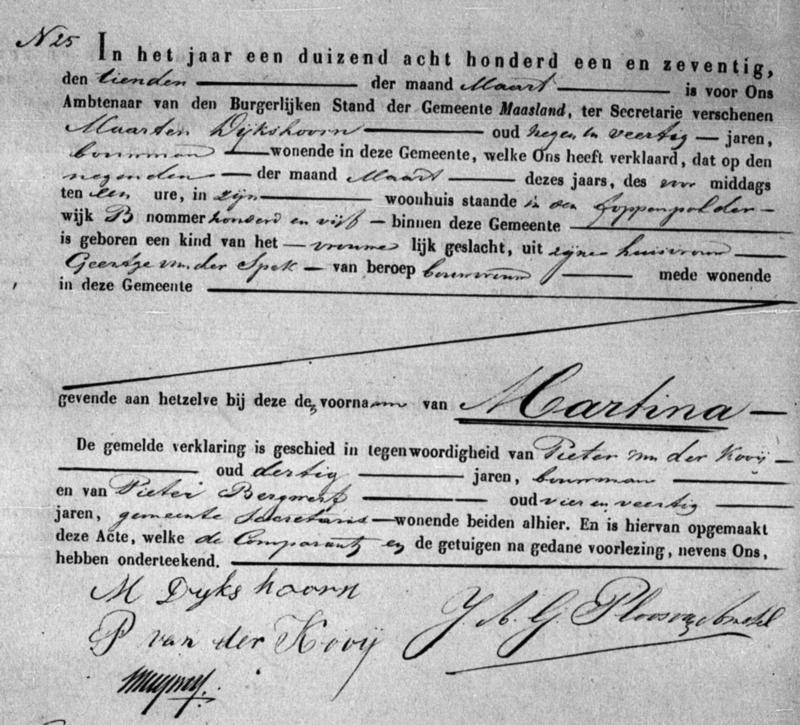 N 25 In het jaar een duizend acht honderd een en zeventig,
den tienden der maand Maart is voor Ons
Ambtenaar van den Burgerlijken Stand der Gemeente Maasland, ter Secretarie verschenen
Maarten Dijkshoorn oud negen en veertig jaren,
bouwman wonende in deze Gemeente, welke Ons heeft verklaard, dat op den
negenden der maand Maart dezes jaars, des voor middags
ten een ure, in zijn woonhuis staande in den Foppenpolder
wijk B nommer honderd en vijf binnen deze Gemeente
is geboren een kind van het vrouwe lijk geslacht, uit zijne huisvrouw
Geertje van der Spek van beroep bouwvrouw mede wonende
in deze Gemeente
gevende aan hetzelve bij deze de voornaam van Martina
De gemelde verklaring is geschied in tegenwoordigheid van Pieter van der Kooij
oud dertig jaren, bouwman
en van Pieter Bergwerf oud vier en veertig
jaren, gemeente Secretaris wonende beiden alhier. En is hiervan opgemaakt
deze Acte, welke de Comparant en de getuigen na gedane voorlezing, nevens Ons,
hebben onderteekend.
M Dykshoorn
P van der Kooij
J A G Ploos van Amstel